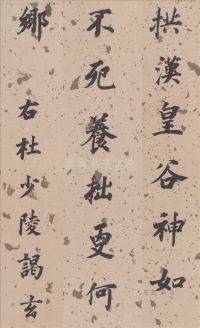 拱漢皇谷神如
不死養拙更何
鄉 右杜少陵謁玄